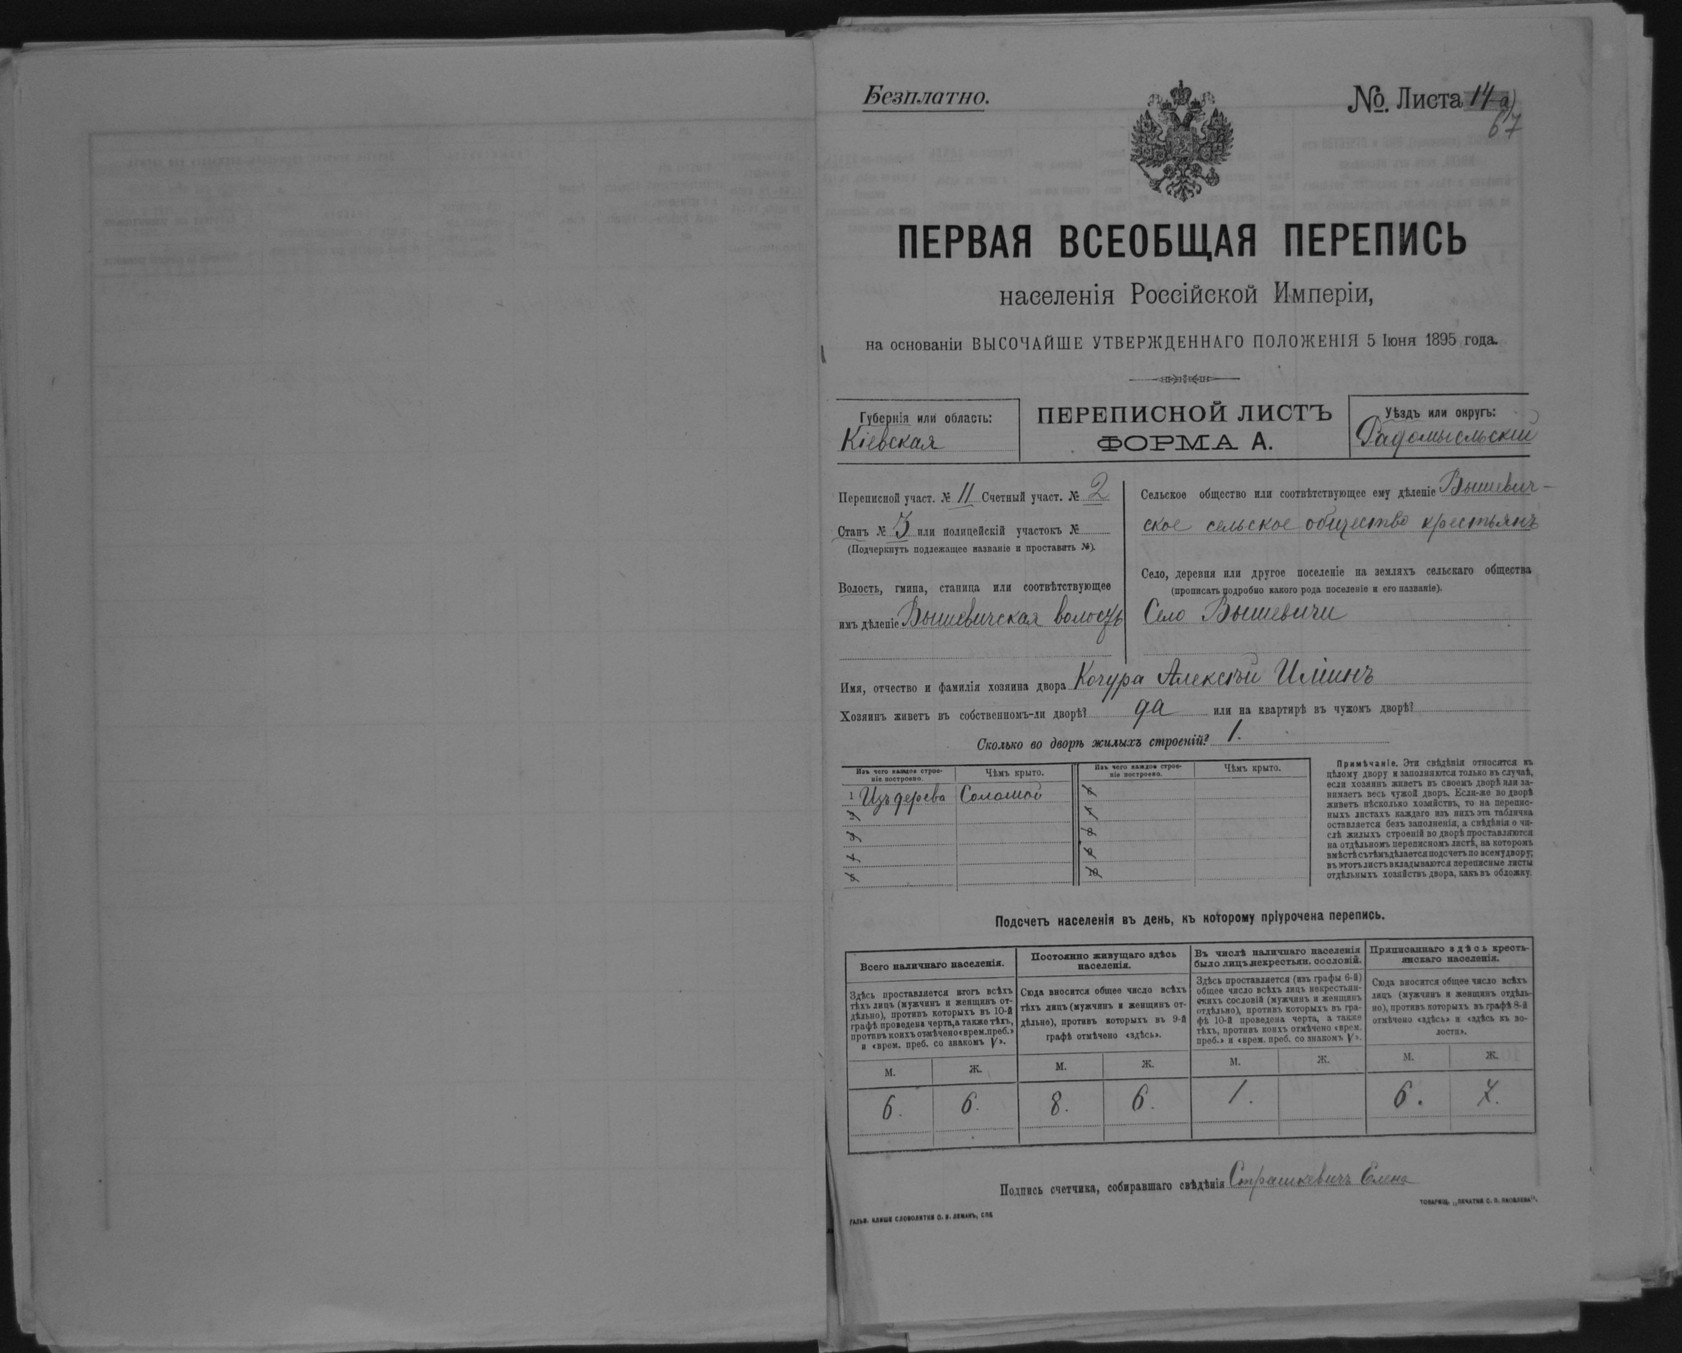 Безплатно.
№. Листа 14 а)
67
ПЕРВАЯ ВСЕОБЩАЯ ПЕРЕПИСЬ
населенія Россійской Имперіи,
на основаніи ВЫСОЧАЙШЕ УТВЕРЖДЕННАГО ПОЛОЖЕНІЯ 5 Іюня 1895 года.
Губернія или область:
Кіевская
ПЕРЕПИСНОЙ ЛИСТЪ
ФОРМА А.
Уѣздъ или округъ:
Радомысльскій
Переписной участ. № 11 Счетный участ. № 2
Станъ № 3 или полицейскій участокъ №
(Подчеркнуть подлежащее названіе и проставить №).
Волость, гмина, станица или соотвѣтствующее
имъ дѣленіе Вышевичская волость
Сельское общество или соотвѣтствующее ему дѣленіе Вышевич-
ское сельское общество крестьянъ
Село, деревня или другое поселеніе на земляхъ сельскаго общества
(прописать подробно какого рода поселеніе и его названіе).
Село Вышевичи
Имя, отчество и фамилія хозяина двора Кочура Алексѣй Иліинъ
Хозяинъ живетъ въ собственномъ-ли дворѣ? да или на квартирѣ въ чужомъ дворѣ?
Сколько во дворѣ жилыхъ строеній? 1.
Изъ чего каждое строе-
ніе построено.
Чѣмъ крыто.
Изъ чего каждое строе-
ніе построено.
Чѣмъ крыто.
1 Изъ дерева Соломой
2
3
4
5
6
7
8
9
10
Примѣчаніе. Эти свѣдѣнія относятся къ
цѣлому двору и заполняются только въ случаѣ,
если хозяинъ живетъ въ своемъ дворѣ или за-
нимаетъ весь чужой дворъ. Если-же во дворѣ
живетъ нѣсколько хозяйствъ, то на перепис-
ныхъ листахъ каждаго изъ нихъ эта табличка
оставляется безъ заполненія, а свѣдѣнія о чи-
слѣ жилыхъ строеній во дворѣ проставляются
на отдѣльномъ переписномъ листѣ, на которомъ
вмѣстѣ съ тѣмъ дѣлается подсчетъ по всему двору;
въ этотъ листъ вкладываются переписные листы
отдѣльныхъ хозяйствъ двора, какъ въ обложку.
Подсчетъ населенія въ день, къ которому пріурочена перепись.
Всего наличнаго населенія.
Здѣсь проставляется итогъ всѣхъ
тѣхъ лицъ (мужчинъ и женщинъ от-
дѣльно), противъ которыхъ въ 10-й
графѣ проведена черта, а также тѣхъ,
противъ коихъ отмѣчено «врем. преб.»
и «врем. преб. со знакомъ V».
Постоянно живущаго здѣсь
населенія.
Сюда вносится общее число всѣхъ
тѣхъ лицъ (мужчинъ и женщинъ от-
дѣльно), противъ которыхъ въ 9-й
графѣ отмѣчено «здѣсь».
Въ числѣ наличнаго населенія
было лицъ некрестьян. сословій.
Здѣсь проставляется (изъ графы 6-й)
общее число всѣхъ лицъ некрестьян-
скихъ сословій (мужчинъ и женщинъ
отдѣльно), противъ которыхъ въ гра-
фѣ 10-й проведена черта, а также
тѣхъ, противъ коихъ отмѣчено «врем.
преб.» и «врем. преб. со знакомъ V».
Приписаннаго здѣсь кресть-
янскаго населенія.
Сюда вносится общее число всѣхъ
лицъ (мужчинъ и женщинъ отдѣль-
но), противъ которыхъ въ графѣ 8-й
отмѣчено «здѣсь» и «здѣсь въ во-
лости».
М. Ж. М. Ж. М. Ж. М. Ж.
6. 6. 8. 6. 1. 6. 7.
Подпись счетчика, собиравшаго свѣдѣнія Страшкевичъ Елена
ГАЛЬВ. КЛИШЕ СЛОВОЛИТНИ О. И. ЛЕМАНЪ, СПБ.
ТОВАРИЩ. „ПЕЧАТНЯ С. П. ЯКОВЛЕВА“.